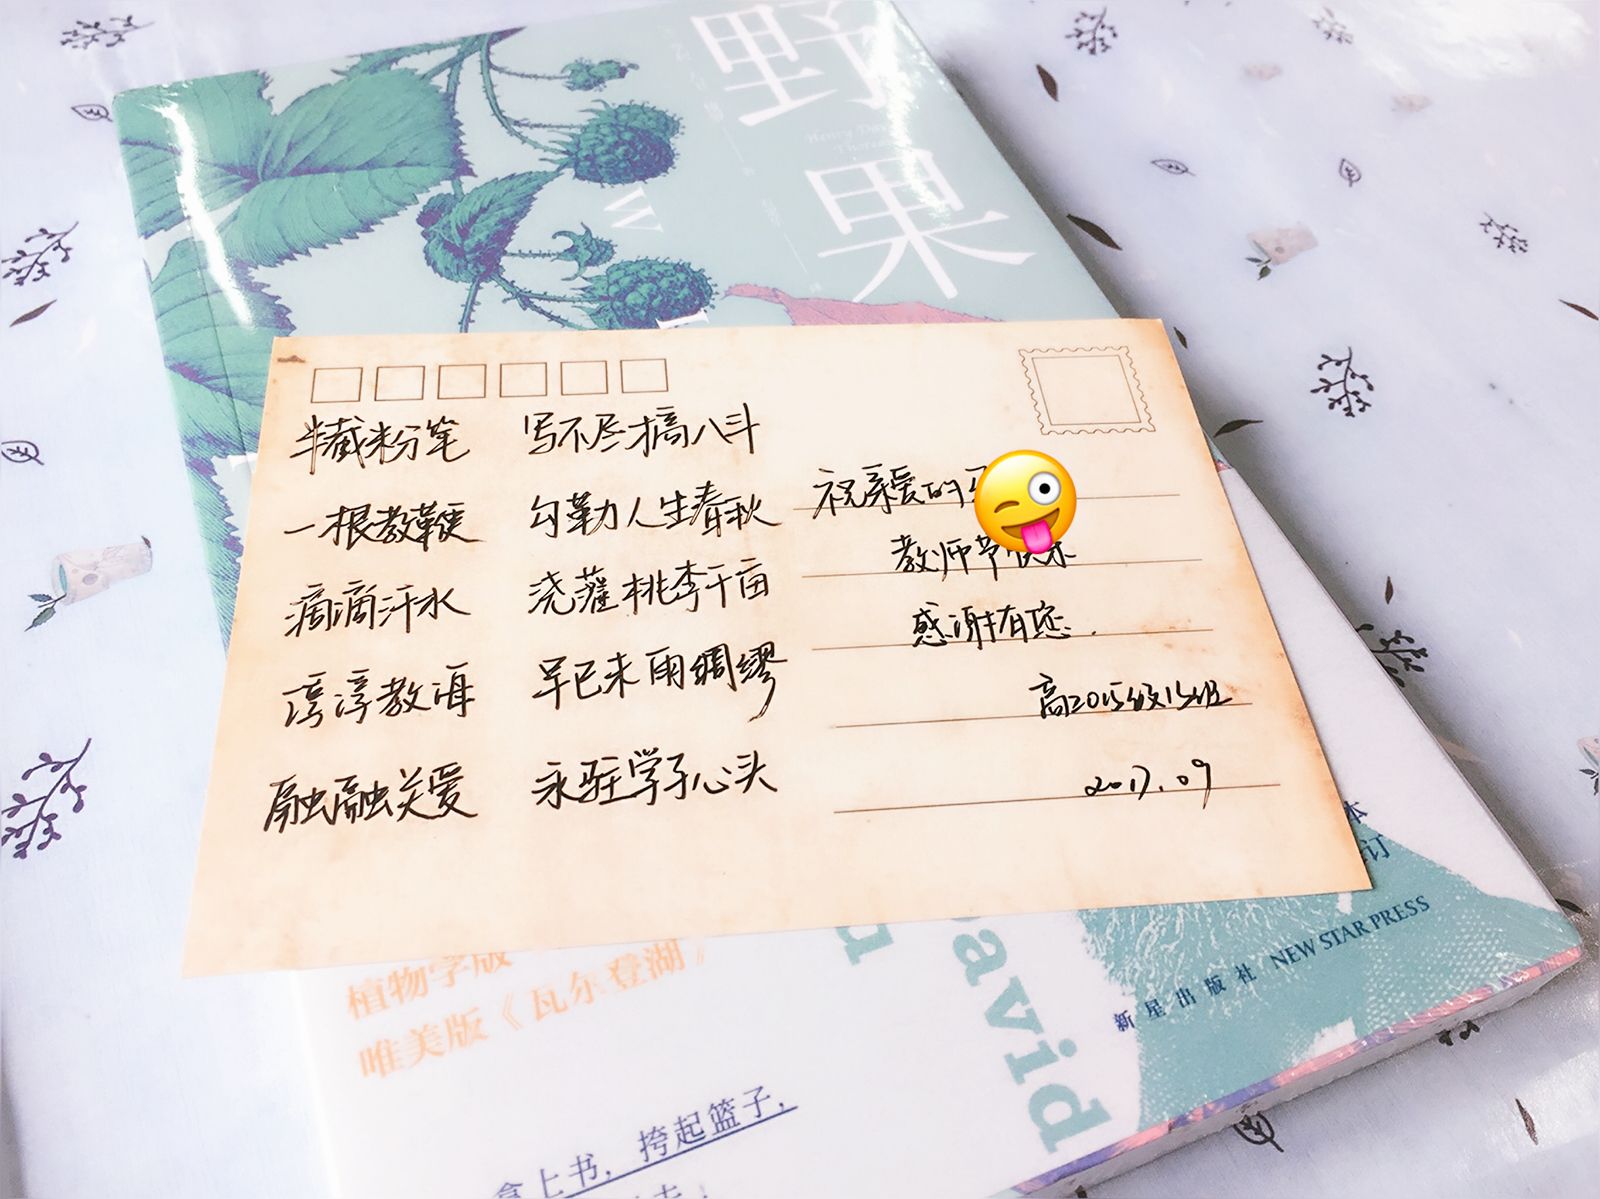 野果
Henry Dav
Thorea
W
半截粉笔 写不尽才高八斗
一根教鞭 勾勒人生春秋
滴滴汗水 浇灌桃李千亩
谆谆教诲 早已未雨绸缪
融融关爱 永驻学子心头
祝亲爱的
教师节快乐
感谢有您.
高2015级15班
2017.09
本
订
植物学版
唯美版《瓦尔登湖》
avid
新星出版社 NEW STAR PRESS
拿上书，挎起篮子，